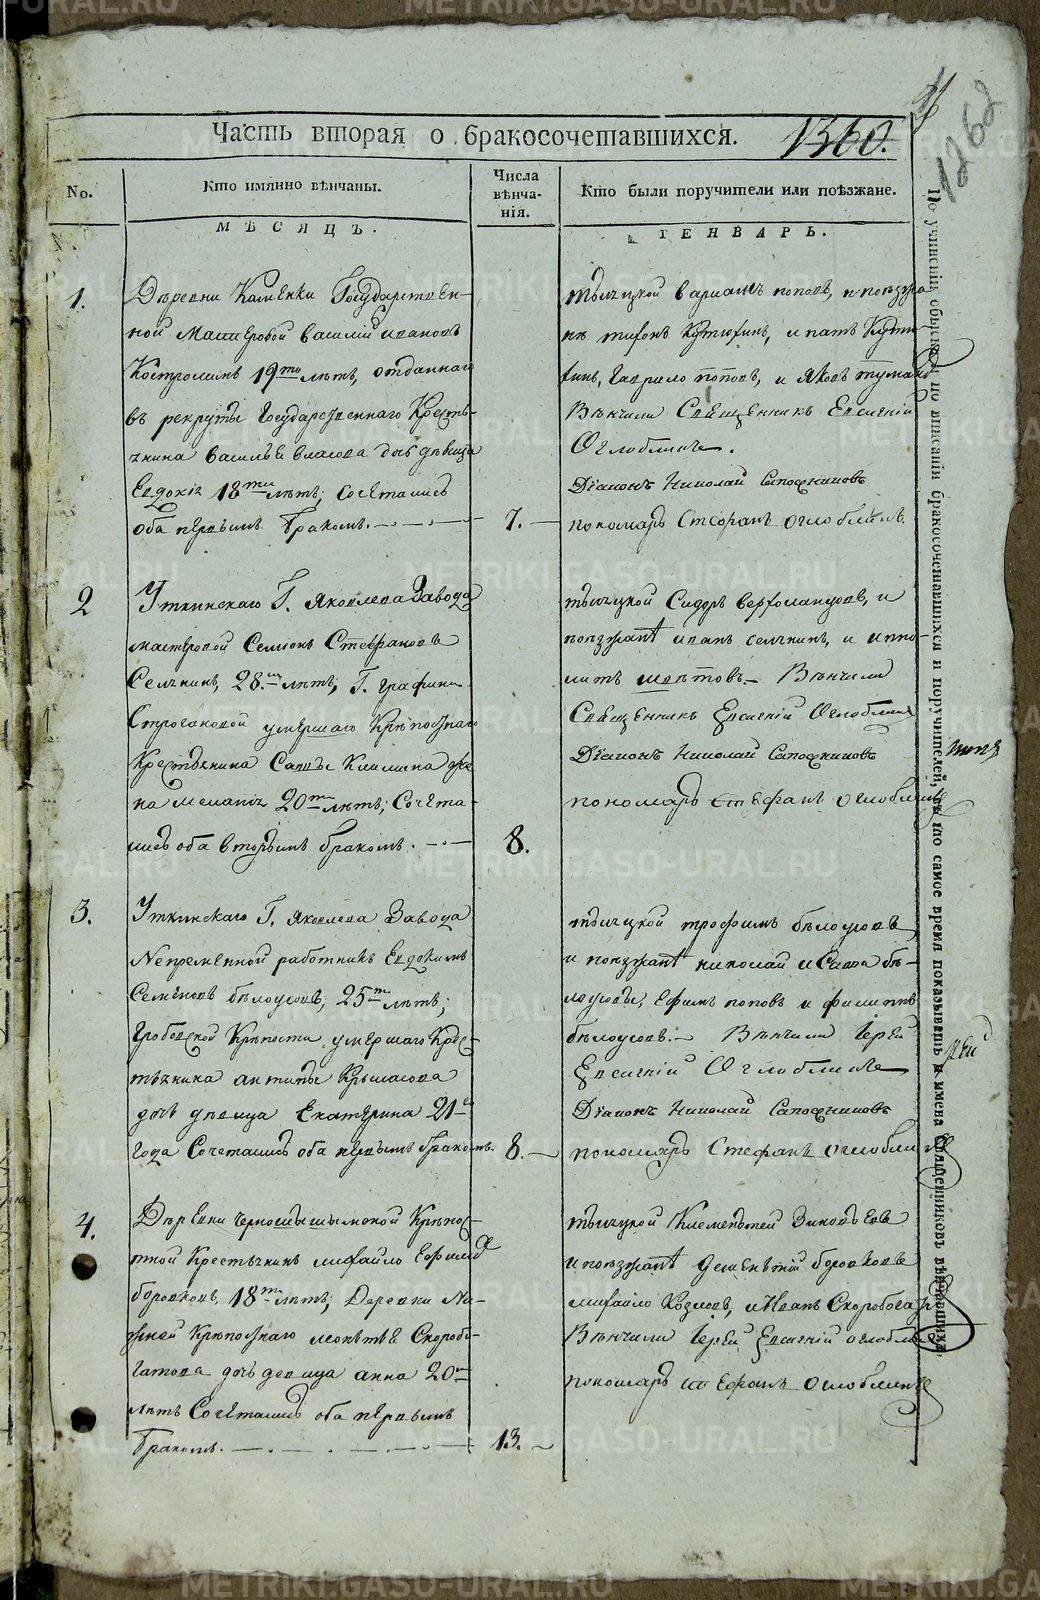 Часть вторая о бракосочетавшихся. 1360.
1262
No.
Кто имянно вѣнчаны.
Числа вѣнча-
нія.
Кто были поручители или поѣзжане.
МѢСЯЦЪ.
ГЕНВАРЬ.
1.
Деревни Каменки Государствен-
ной Мастеровой василий ивановъ
Костроминъ 19ти лѣтъ, отданнаго
въ рекруты Государственнаго Кресть-
янина василья власова дочь девица
Евдокія 18ти лѣтъ; Сочетались
оба первымъ бракомъ.
7.
тысяцкой варламъ поповъ, и поѣзжа
не тифонъ Кутюхинъ, и патъ Кутю-
хинъ, Гаврило поповъ, и Яковъ
Вѣнчали Священникъ Евсигній
Оглоблинъ.
Діаконъ Николай Сапожниковъ
пономарь Стефанъ оглоблинъ.
2
Уткинскаго Г. Яковлева Завода
мастеровой Семіонъ Стефановъ
Селянинъ, 28ми лѣтъ; Г. графини
Строгановой умершаго Крѣпостнаго
Крестьянина Саввы Климина же
на меланья 20ти лѣтъ; Сочета-
лись оба вторымъ бракомъ.
8.
тысяцкой Сидоръ варфоламѣевъ, и
поѣзжанѣ иванъ селянинъ, и иппо-
литъ шветовъ. Вѣнчали
Священникъ Евсигній Оглоблинъ
Діаконъ Николай Сапожниковъ
пономарь стефанъ оглоблинъ
3.
Уткинскаго Г. Яковлева Завода
Непременной работникъ Евдокимъ
Семеновъ бѣлоусовъ, 25ти лѣтъ;
Гробовской Крѣпости умершаго Крес-
тьянина антипы Крымасова
дочь девица Екатерина 21го
года Сочетались оба первымъ бракомъ.
8.
тысяцкой трофимъ бѣлоусовъ,
и поѣзжанѣ николай и Савва бѣ-
лоусовы, Ефимъ поповъ и филиппъ
бѣлоусовъ. Вѣнчали Іерей
Евсигній Оглоблинъ
Діаконъ Николай Сапожниковъ
пономарь Стефанъ оглоблинъ
4.
Деревни Крѣпос-
тной Крестьянинъ михайло Ефимов
боровковъ, 18ти лѣтъ; Деревни Ни-
жней Крѣпостнаго Скоробо-
гатова дочь девица анна 20ти
лѣтъ Сочетались оба первымъ
бракомъ.
13.
тысяцкой Клементей Зиновьевъ
и поѣзжанѣ дементій боровковъ
михайло Козловъ, и Иванъ Скоробогат
Вѣнчали Іерей Евсигній оглоблин
пономарь стефанъ оглоблинъ
По учиненіи обыска и по вписаніи бракосочетавшихся и поручителей, въ то самое время показывать и имена священниковъ вѣнчавшихъ.
METRIKI.GASO-URAL.RU